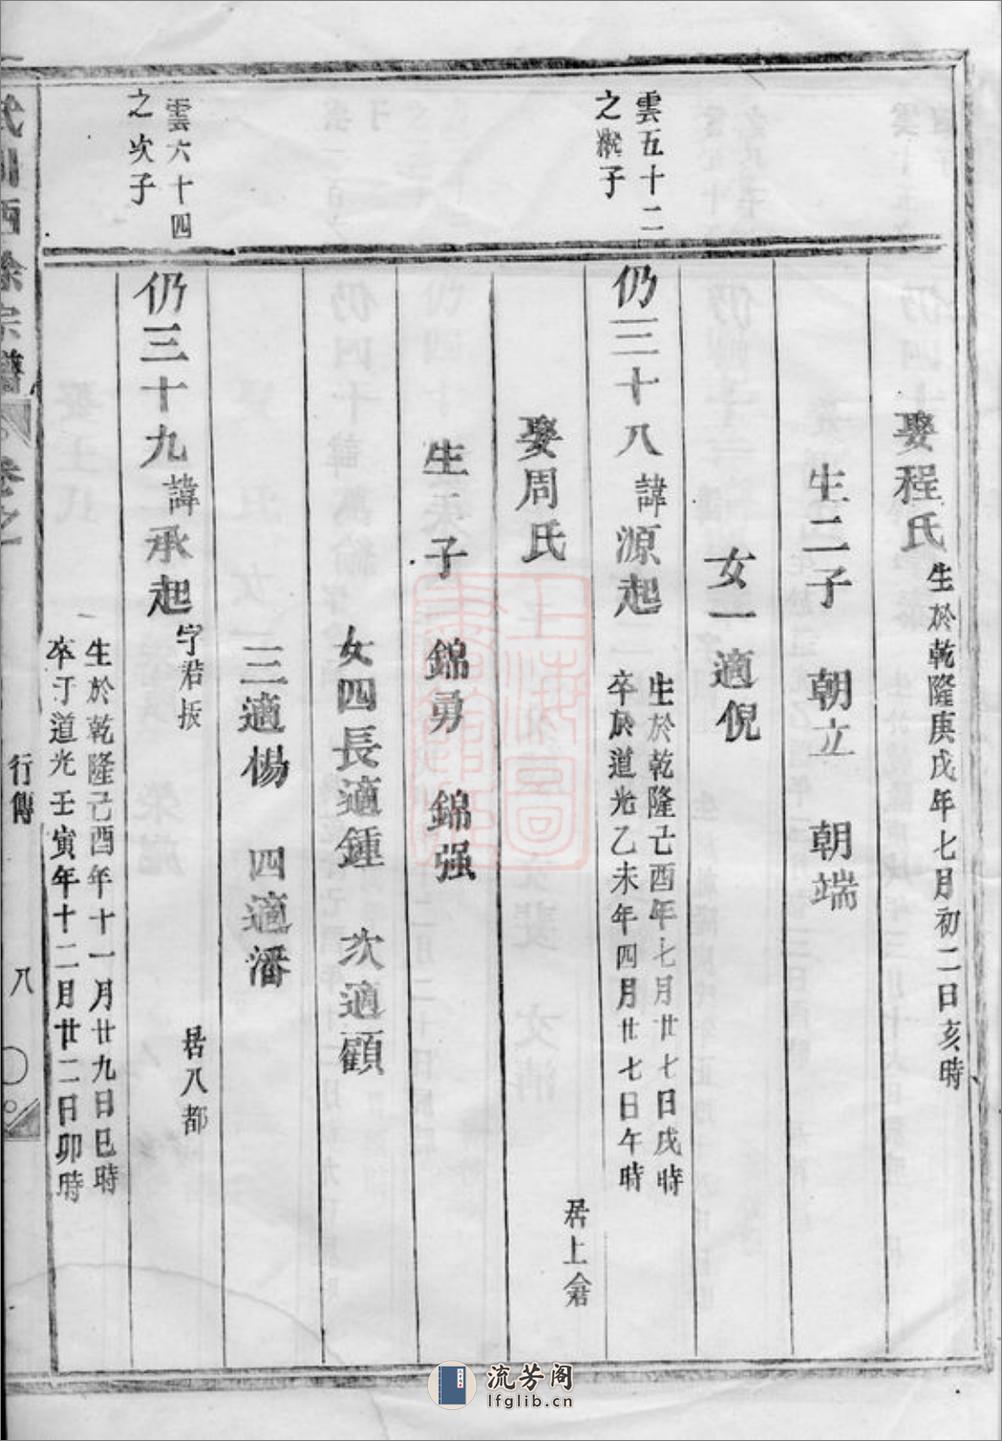 娶程氏
生於乾隆庚戌年七月初二日亥時
生二子 朝立 朝端
女一適倪
雲五十二
之次子
仍三十八 諱源起
生於乾隆己酉年七月廿七日戌時
卒於道光乙未年四月廿七日午時
娶周氏
居上倉
生二子 錦勇 錦强
女四長適鍾 次適顧
三適楊 四適潘
雲六十四
之次子
仍三十九 諱承起
字君振
居八都
生於乾隆己酉年十一月廿九日巳時
卒于道光壬寅年十二月廿二日卯時
西徐宗譜 卷之
行傳 八
上海圖書館藏
流芳阁
lfglib.cn